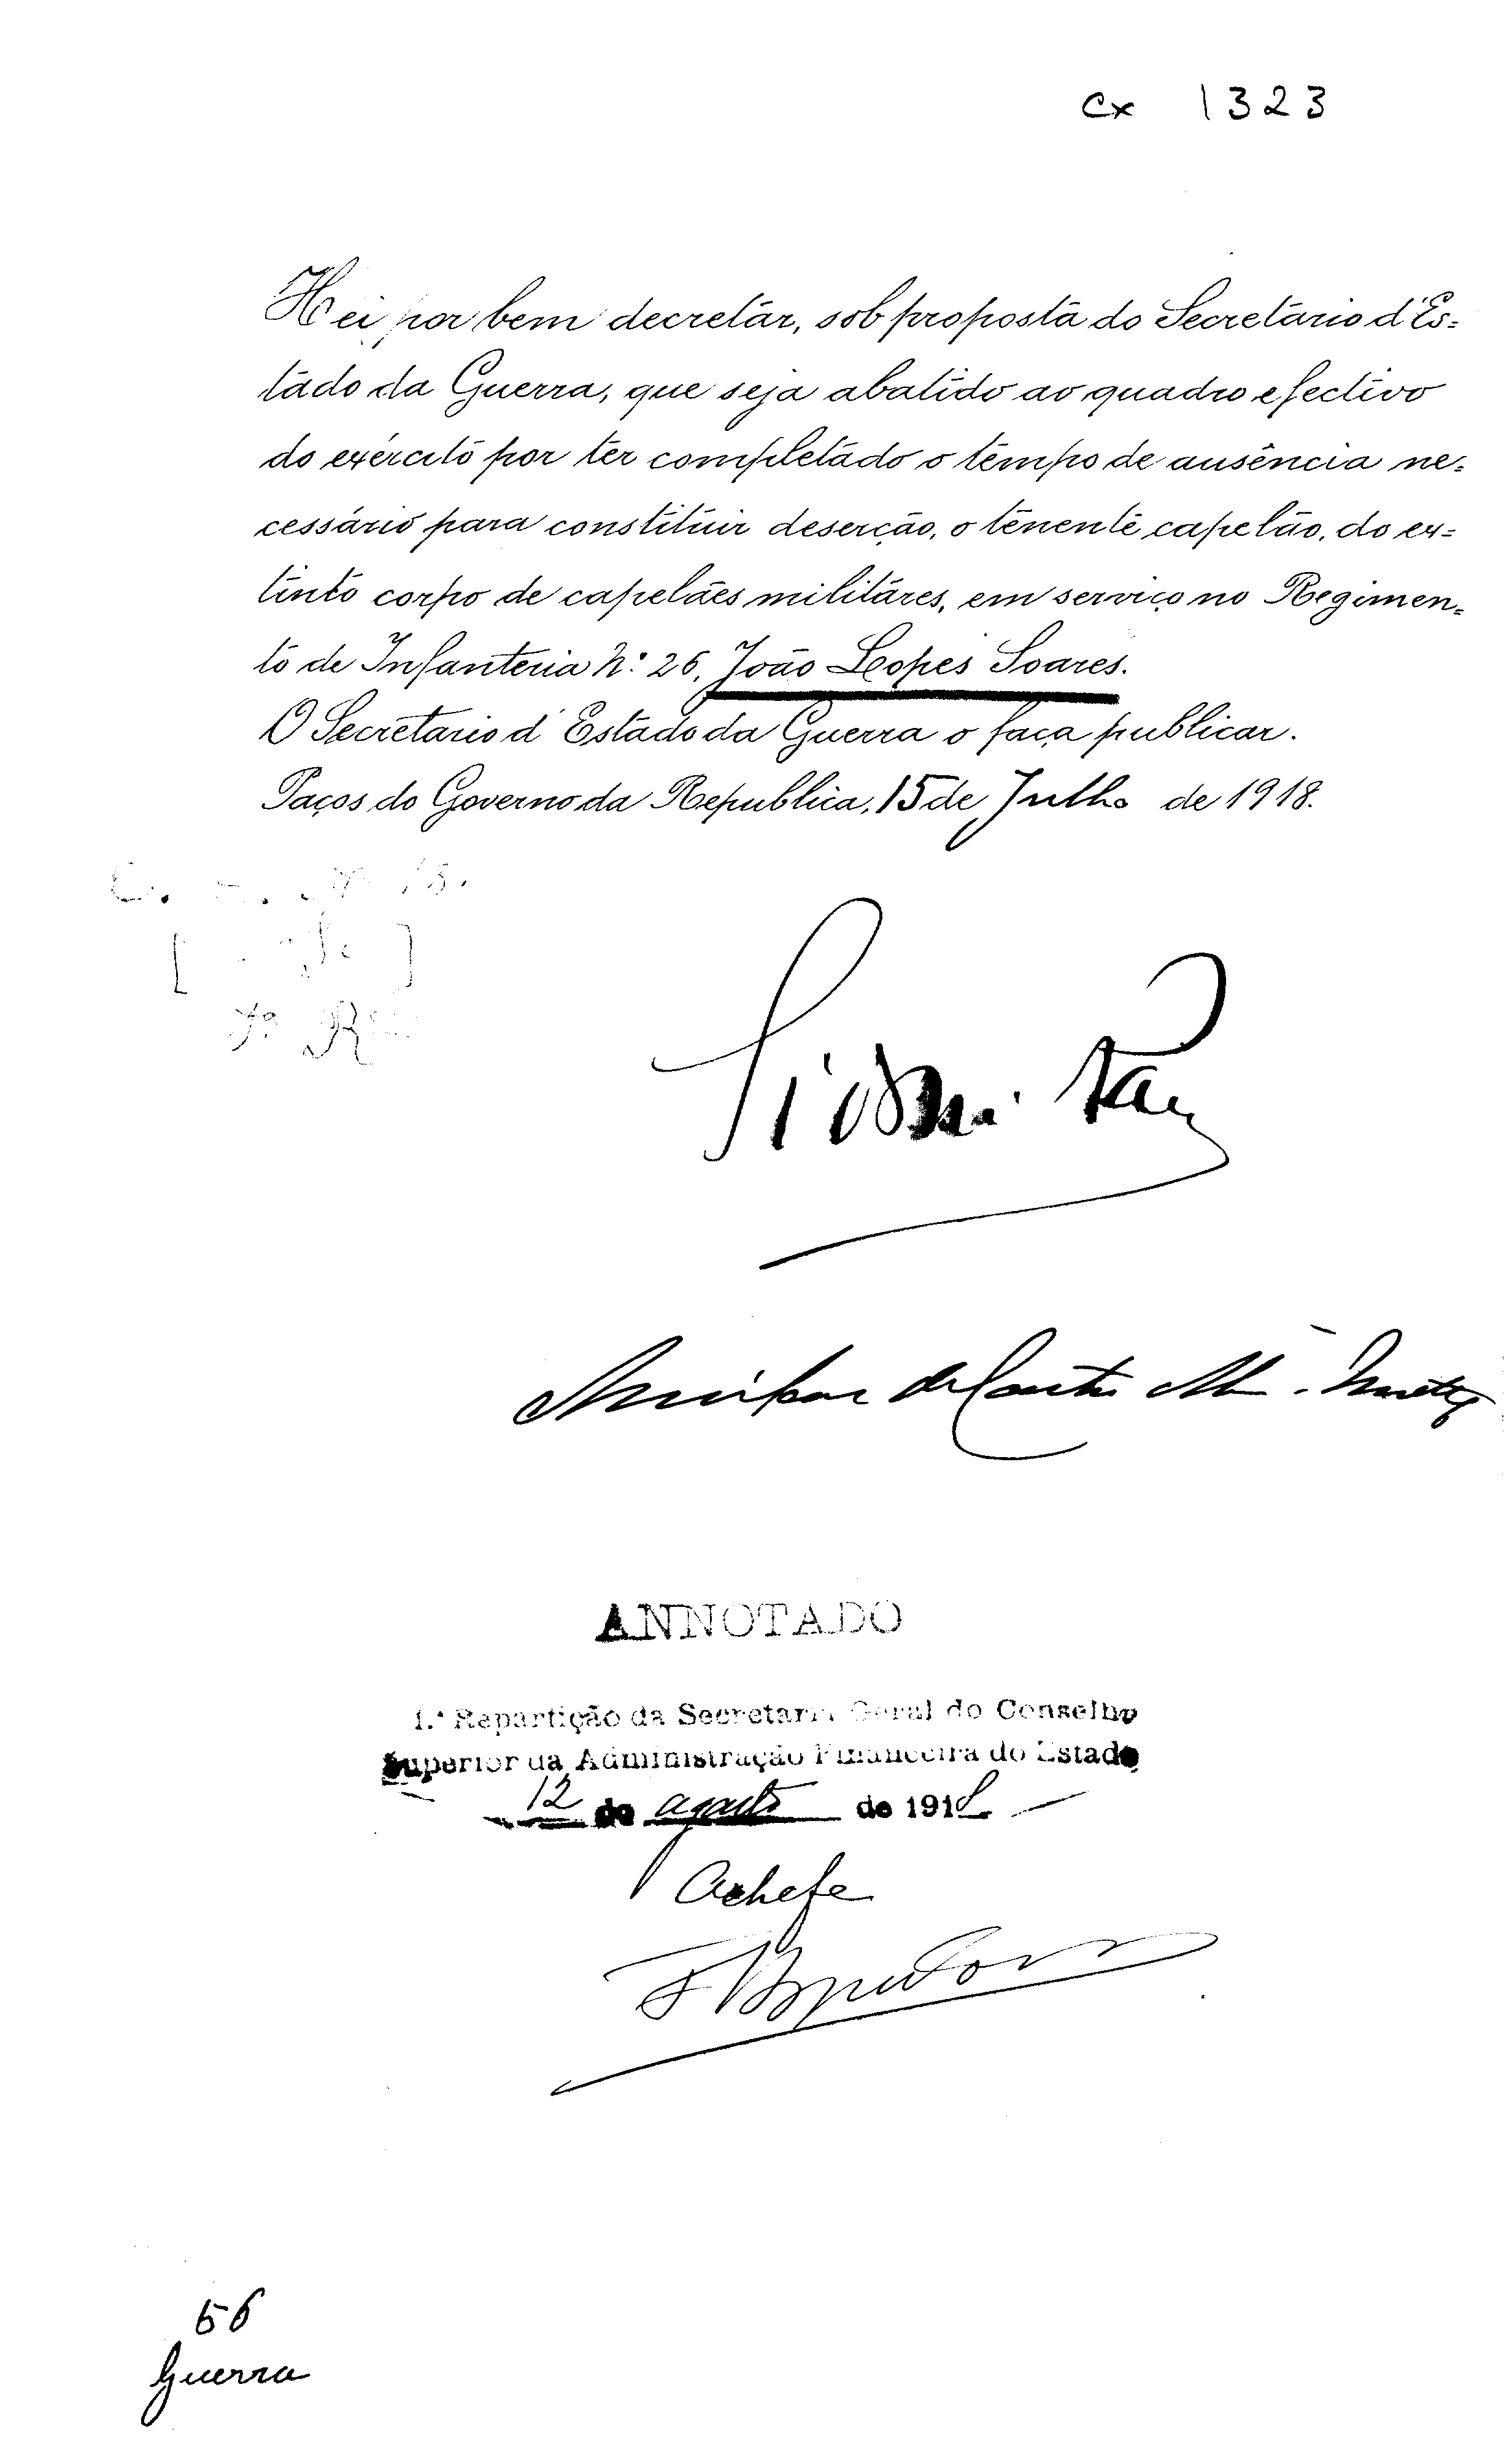 Cx 1323
Hei por bem decretár, sob proposta do Secretário d'Es=
tádo da Guerra, que seja abatido ao quadro efectivo
do exército por ter completádo o tempo de ausência ne=
cessário para constituir deserção, o tenente capelão, do ex=
tinto corpo de capelães militáres, em serviço no Regimen=
to de Infanteria N.º 26, João Lopes Soares.
O Secretario d'Estado da Guerra o faça publicar.
Paços do Governo da Republica, 15 de Julho de 1918.
Sidonio Paes
Amilcar de Castro Abreu e Motta
ANNOTADO
1.ª Repartição da Secretaria Geral do Conselho
Superior da Administração Financeira do Estado
12 de agosto de 1918
O chefe
56
Guerra